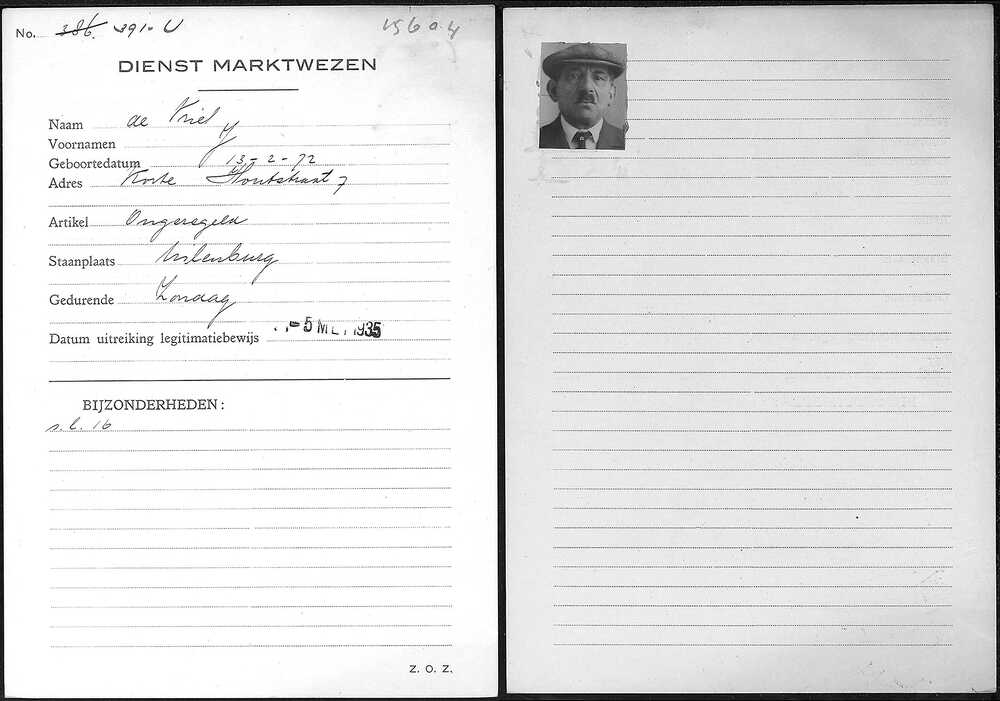 No. 386. 391-U 15604
DIENST MARKTWEZEN
Naam de Vriel
Voornamen J
Geboortedatum 13-2-72
Adres Korte Houtstraat 7
Artikel Ongeregeld
Staanplaats Uilenburg
Gedurende Zondag
Datum uitreiking legitimatiebewijs -5 MEI 1935
BIJZONDERHEDEN:
s.l. 16
Z. O. Z.